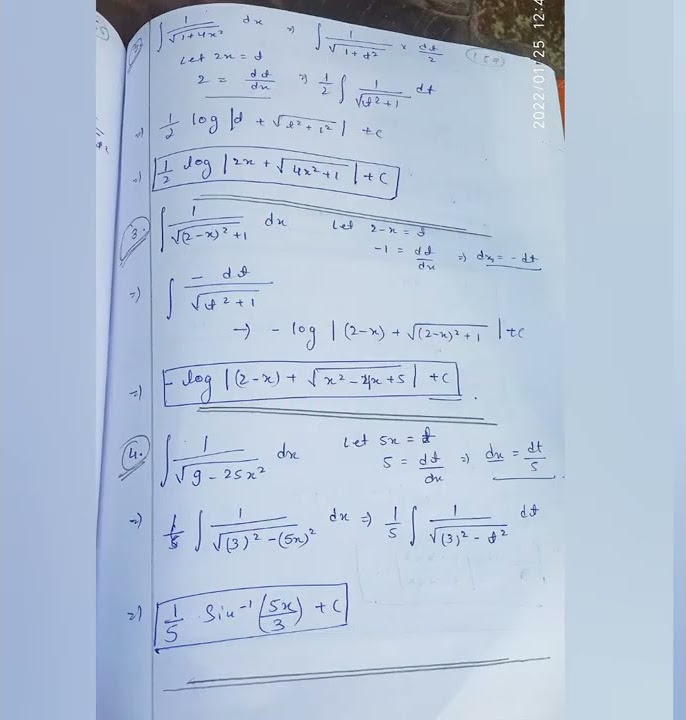 2. ∫ 1/√(1+4x²) dx ⇒ ∫ 1/√(1+t²) × dt/2
Let 2x = t
2 = dt/dx ⇒ 1/2 ∫ 1/√(t²+1) dt
⇒ 1/2 log |t + √(t²+1²)| + c
⇒ 1/2 log |2x + √(4x²+1)| + C
3. ∫ 1/√((2-x)²+1) dx Let 2-x = t
-1 = dt/dx ⇒ dx = -dt
⇒ ∫ - dt/√(t²+1)
→ - log |(2-x) + √((2-x)²+1)| + c
⇒ - log |(2-x) + √(x²-4x+5)| + C
4. ∫ 1/√(9-25x²) dx Let 5x = t
5 = dt/dx ⇒ dx = dt/5
⇒ 1/5 ∫ 1/√((3)²-(5x)²) dx ⇒ 1/5 ∫ 1/√((3)²-t²) dt
⇒ 1/5 Sin⁻¹(5x/3) + C
2022/01/25 12:4